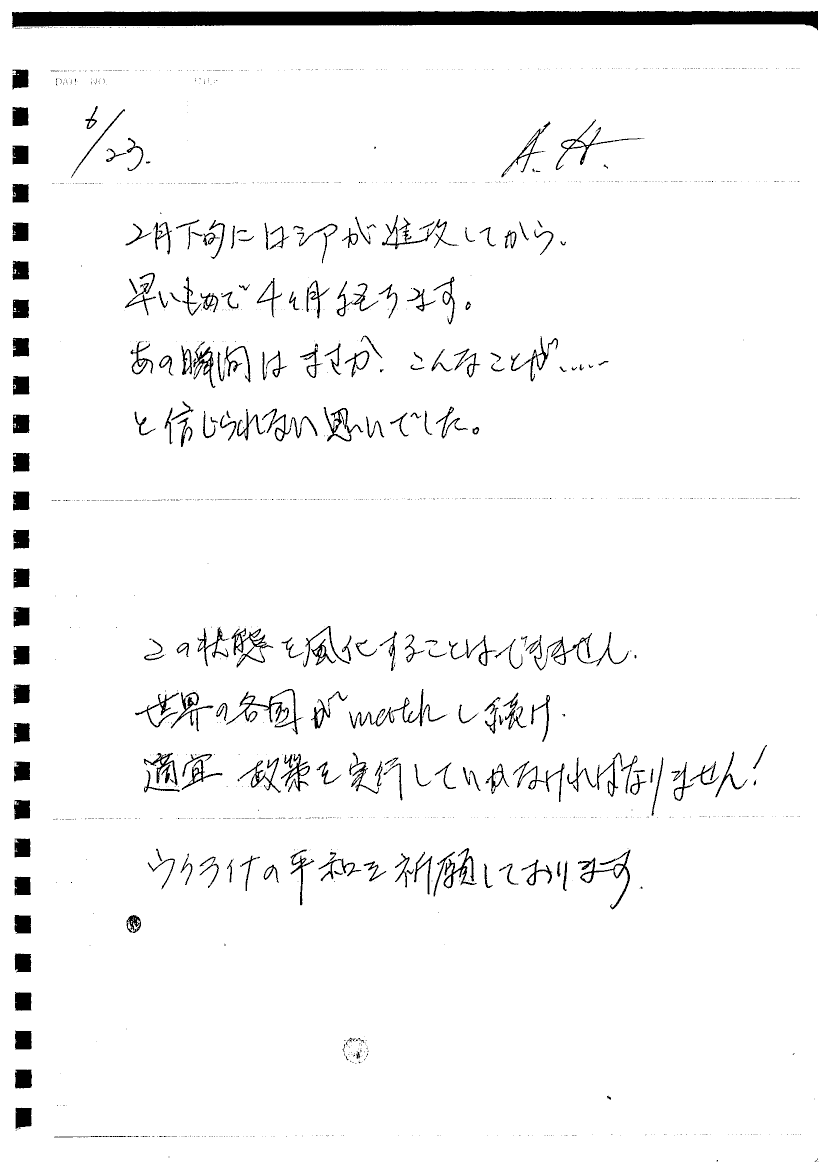 DATE NO. TITLE
6/23. A.H.
2月下旬にロシアが進攻してから、
早いもので4ヶ月経ちます。
あの瞬間はまさか、こんなことが……
と信じられない思いでした。
この状態を風化することはできません。
世界の各国がwatchし続け、
適宜 政策を実行していかなければなりません!
ウクライナの平和を祈願しております。